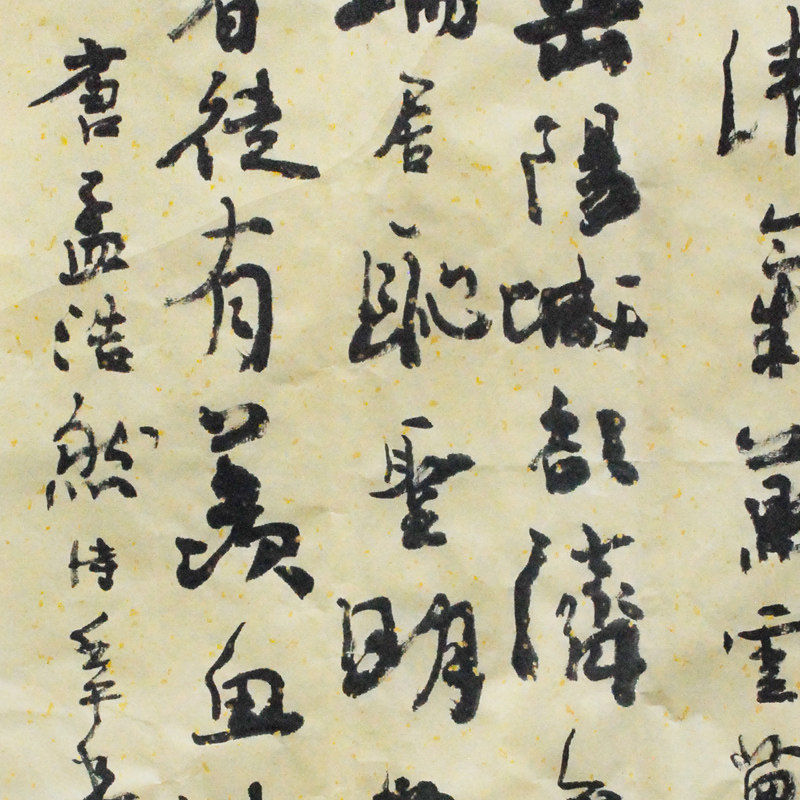 清氣蒸雲夢
岳陽城欲濟
端居恥聖明
者徒有羨魚
書孟浩然詩壬午